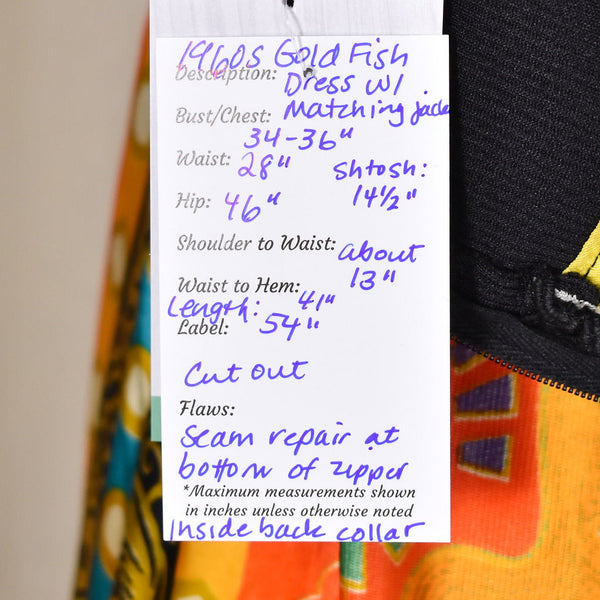 1960s Gold Fish
Description: Dress w/
Bust/Chest: Matching jacke
34-36"
Waist: 28" Shtosh:
Hip: 46" 14½"
Shoulder to Waist: about
13"
Waist to Hem: 41"
Length: 54"
Label:
Cut out
Flaws:
Seam repair at
bottom of zipper
*Maximum measurements shown
in inches unless otherwise noted
Inside back collar